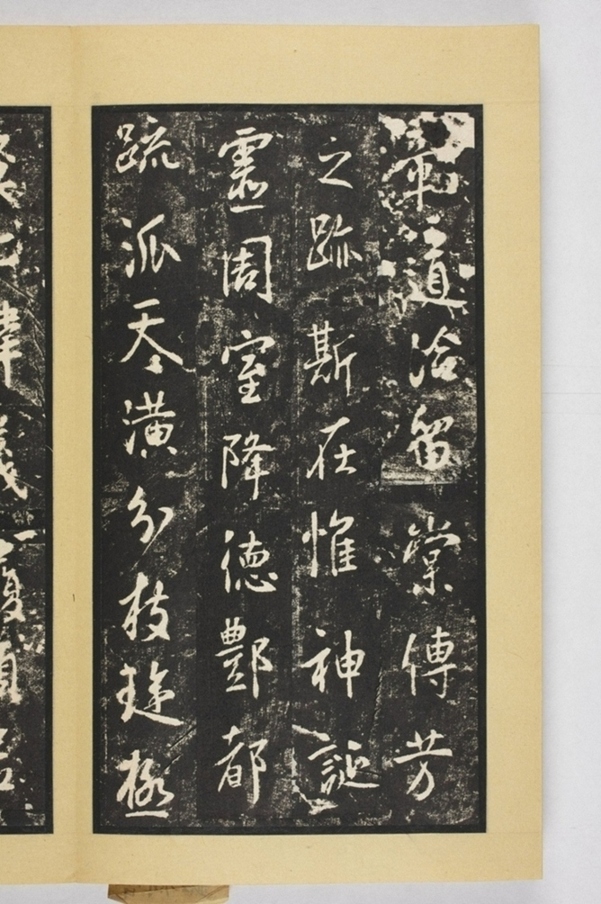 道洽留棠傳芳
之跡斯在惟神誕
靈周室降德酆都
疏派天潢分枝璇極